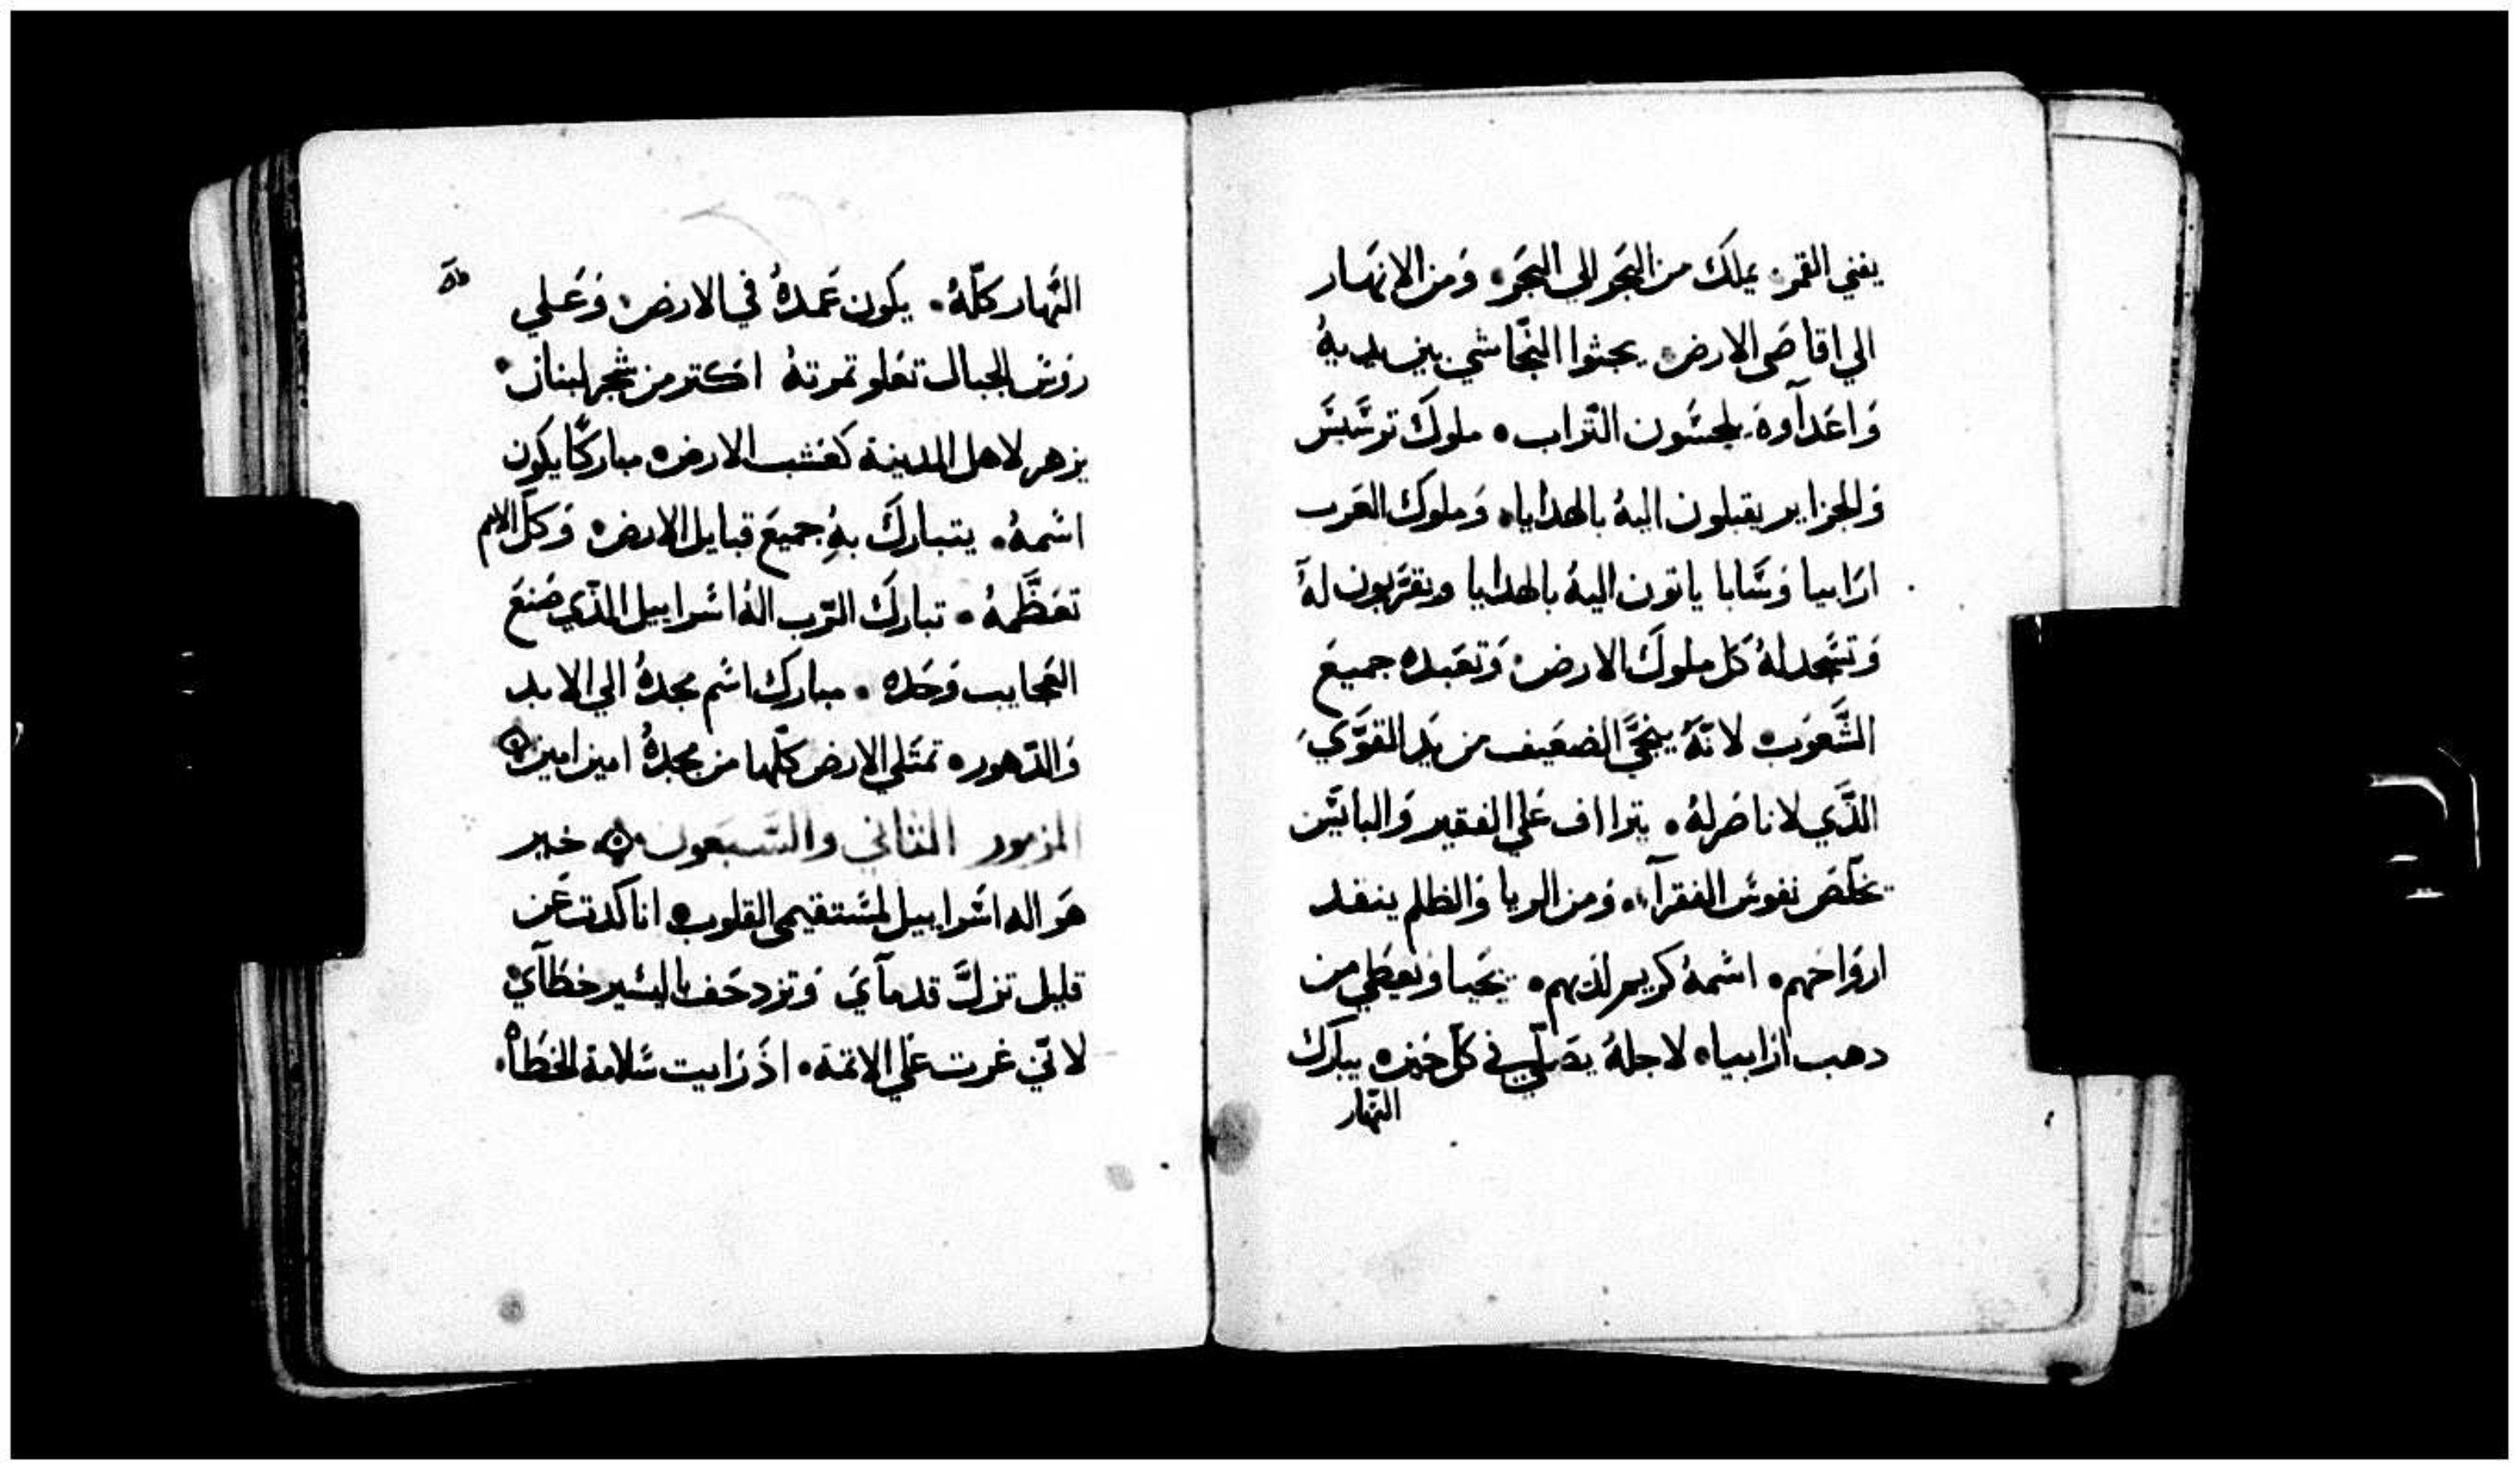 يفني القمر. يملك من البحر الي البحر. وَمن الانهَار
الي اقاصَى الارض. يجثوا النّجاشي بين يديهُ
وَاعَدآوهَ يلحسَون التّراب. ملوكَ ترسَيسَ
وَالجزاير يقبلون اليهُ بالهدايا. وَملوكَ العَرب
ارَابيا وَسَابا ياتون اليهُ بالهدايا ويقرّبون لهُ
وَتسَجد لهُ كل ملوكَ الارض. وَتعَبده جميعَ
الشَّعَوب. لانّهُ ينجيَّ الضعَيف من يَد القوَّي
الذّي لا ناصَر لهُ. يترااف عَلي الفقير وَالبائسَ
يخلّصَ نفوسَ الفقرآء. وَمن الربا وَالظلم ينقذ
ارَوَاحَهم. اسَمهُ كريم لدَيهم. يحَيا وَيعطي من
دهب ارَابيا. لاجلهُ يصَلّي في كلّ حَين. يباركَ
النّهار
النَّهار كلّهُ. يكون عَمدهُ في الارض. وَعَلي
روَسَ الجبال تعَلو تمرتهُ اكتر من شجر لبنان.
يزهر لاهل المدينة كعَشب الارض. مباركًا يكون
اسَمهُ. يتباركَ بهِ جميعَ قبايل الارض. وَكلّ الامم
تعَظَّمهُ. تباركَ الرّب الهُ اسَراييل الذّي صَنعَ
العَجايب وَحَده. مباركَ اسَم مجدهُ الي الابد
وَالدّهور. تمتَلي الارض كلّها من مجدهُ امين امين
المزمور الثاني والسَبعون خير
هوَ اله اسَراييل لمسَتقيمى القلوب. انا كدت عَن
قليل تزلَّ قدمآيَ وَتزدحَف باليسَير خطَآيَ
لانّي غرت عَلي الاثمة. اذَ رَايت سَلامة الخطَاه.